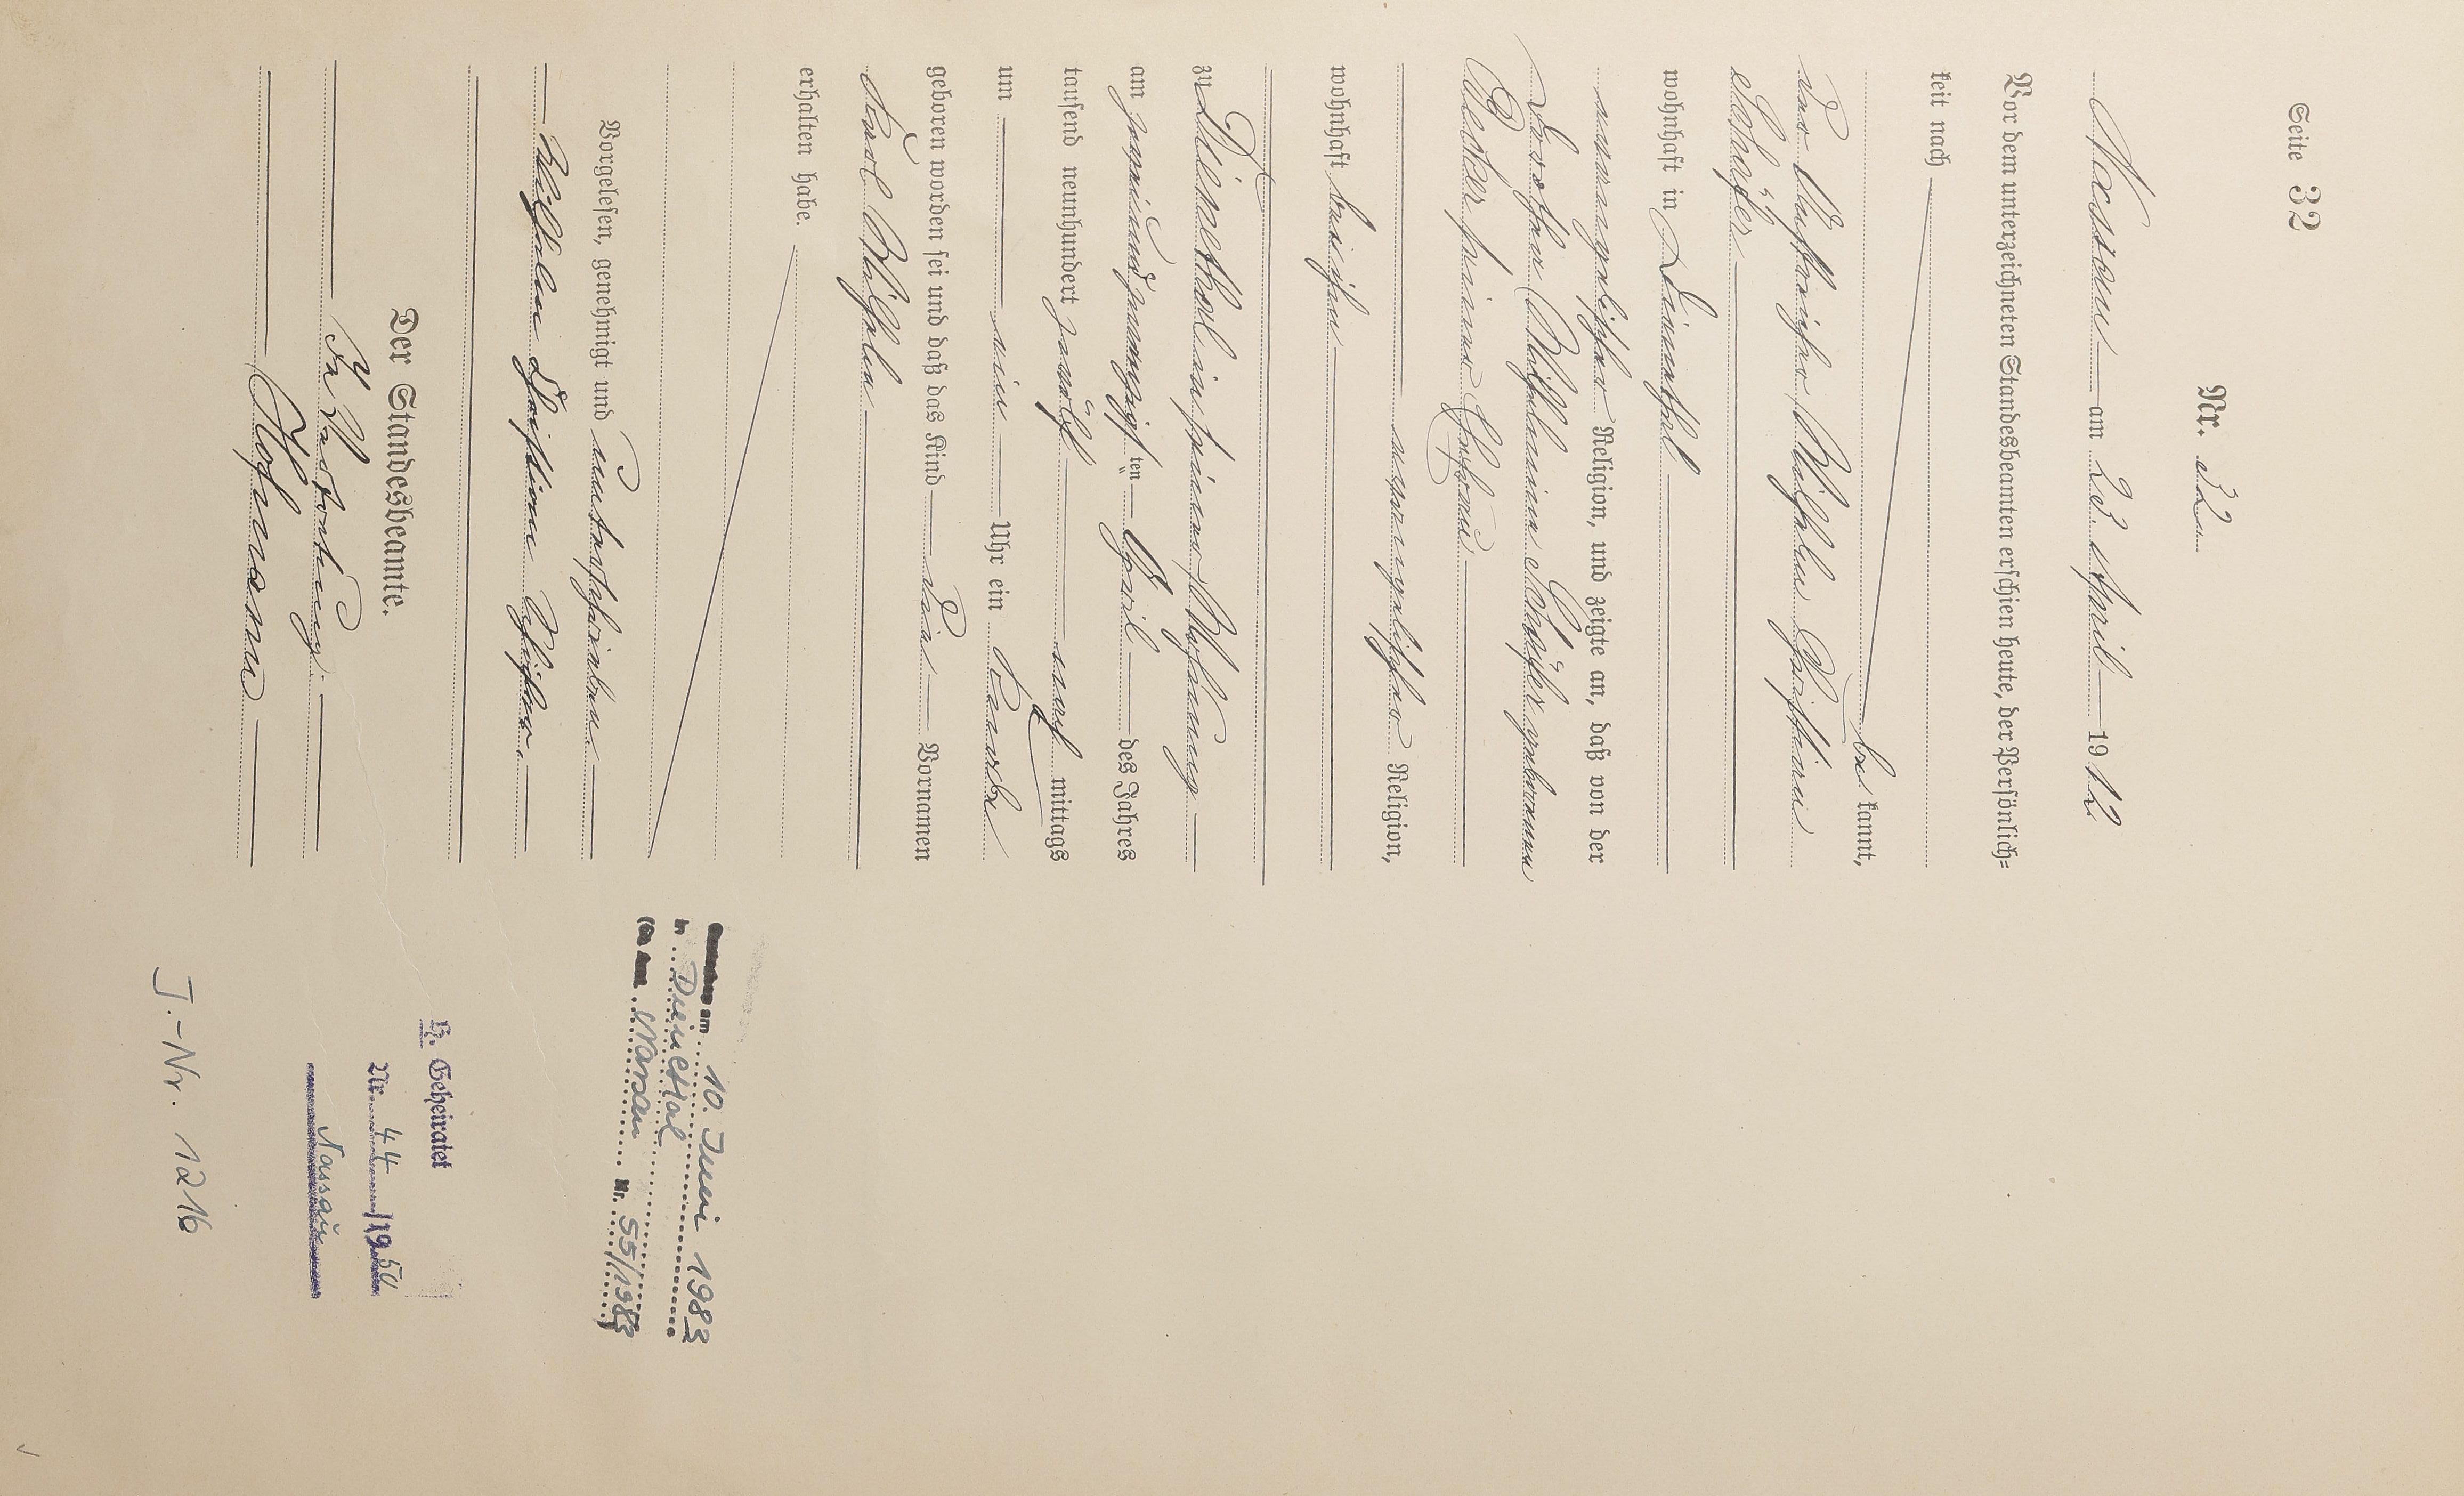 Seite 32
Nr. 32.
Nassau am 23. April 1912
Vor dem unterzeichneten Standesbeamten erschien heute, der Persönlich-
keit nach
be kannt,
der Wilhelm Christian
Schäfer
wohnhaft in Dienethal
evangelischer Religion, und zeigte an, daß von der
Wilhelmine Schäfer geborenen
Becker seiner Ehefrau
evangelischer Religion,
wohnhaft bei ihm
zu Dienethal in seiner Wohnung
am zweiundzwanzigsten April des Jahres
tausend neunhundert zwölf nach mittags
um ein Uhr ein Knabe
geboren worden sei und daß das Kind die Vornamen
Karl Wilhelm
erhalten habe.
Vorgelesen, genehmigt und unterschrieben
Wilhelm Christian Schäfer.
Der Standesbeamte.
In Vertretung.
Hofmann
am 10. Juni 1983
in Dienethal
Nassau Nr. 55/1983)
H. Geheiratet
Nr. 44 /1950
Nassau
J.-Nr. 1216